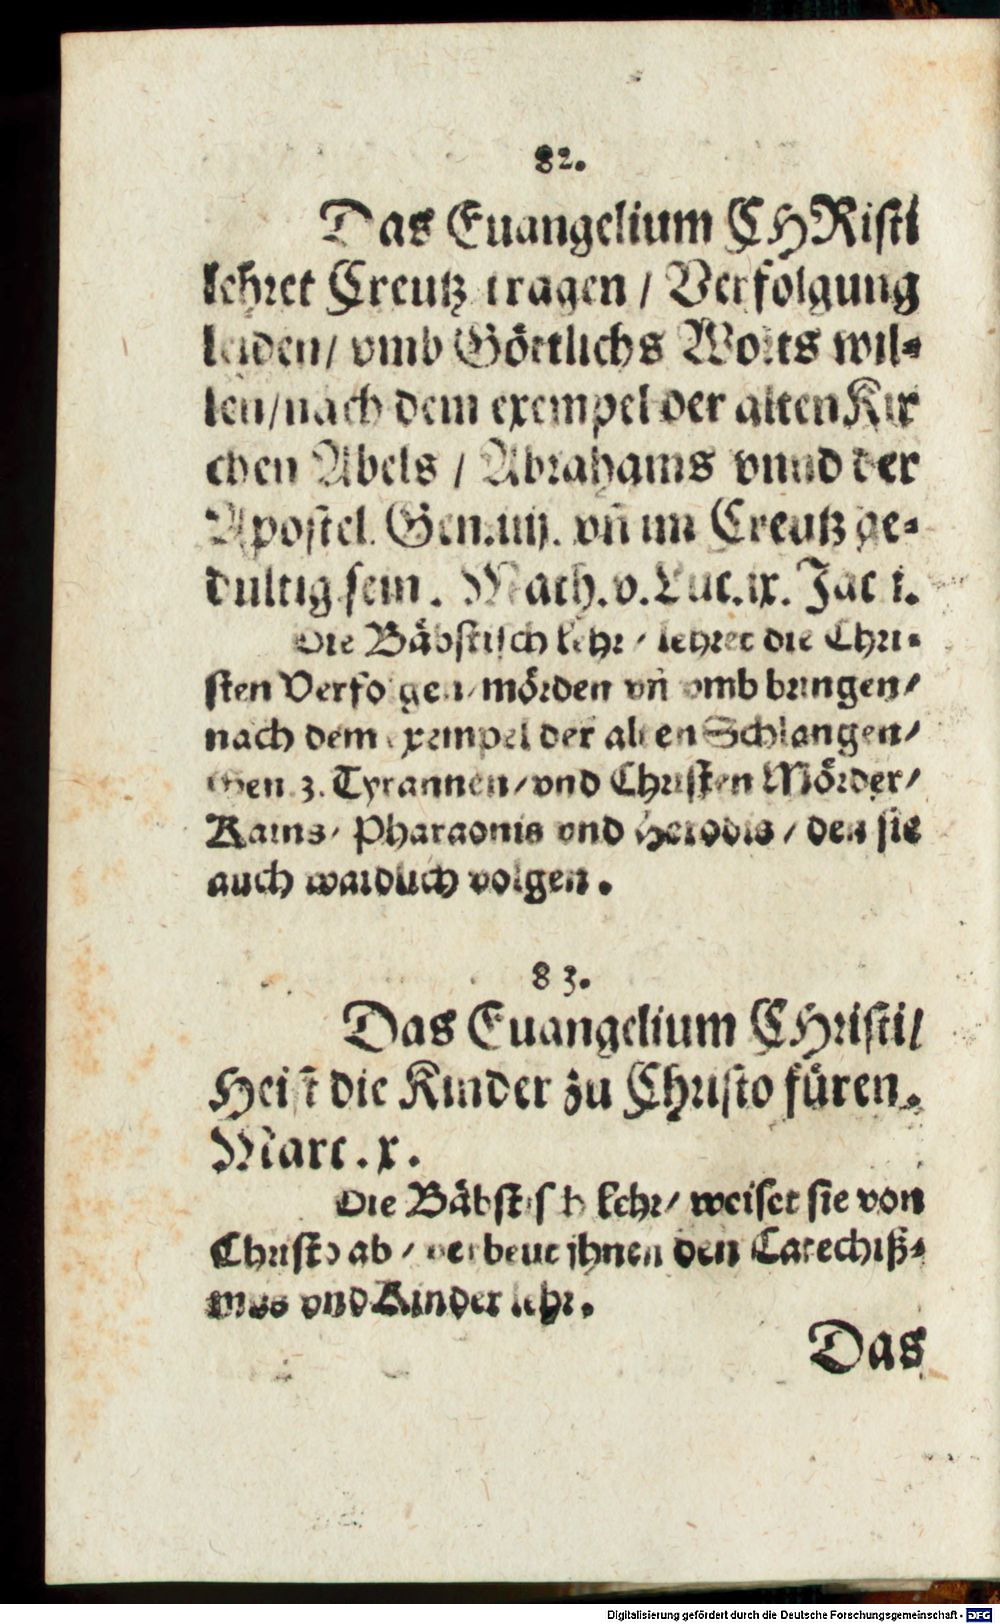 82.
Das Euangelium CHRisti
lehret Creutz tragen / Verfolgung
leiden / vmb Göttlichs Worts wil⸗
len / nach dem exempel der alten Kir
chen Abels / Abrahams vnnd der
Apostel. Gen. iiij. vñ im Creutz ge⸗
dultig sein. Math. v. Luc. ix. Jac i.
Die Bäbstisch lehr / lehret die Chri⸗
sten Verfolgen / mörden vñ vmb bringen /
nach dem exempel der alten Schlangen /
Gen. 3. Tyrannen / vnd Christen Mörder /
Kains / Pharaonis vnd Herodis / den sie
auch waidlich volgen.
83.
Das Euangelium CHristi /
Heist die Kinder zu Christo füren.
Marc. x.
Die Bäbstisch lehr / weiset sie von
Christo ab / verbeut jhnen den Catechiß⸗
mus vnd Kinder lehr.
Das
Digitalisierung gefördert durch die Deutsche Forschungsgemeinschaft - DFG